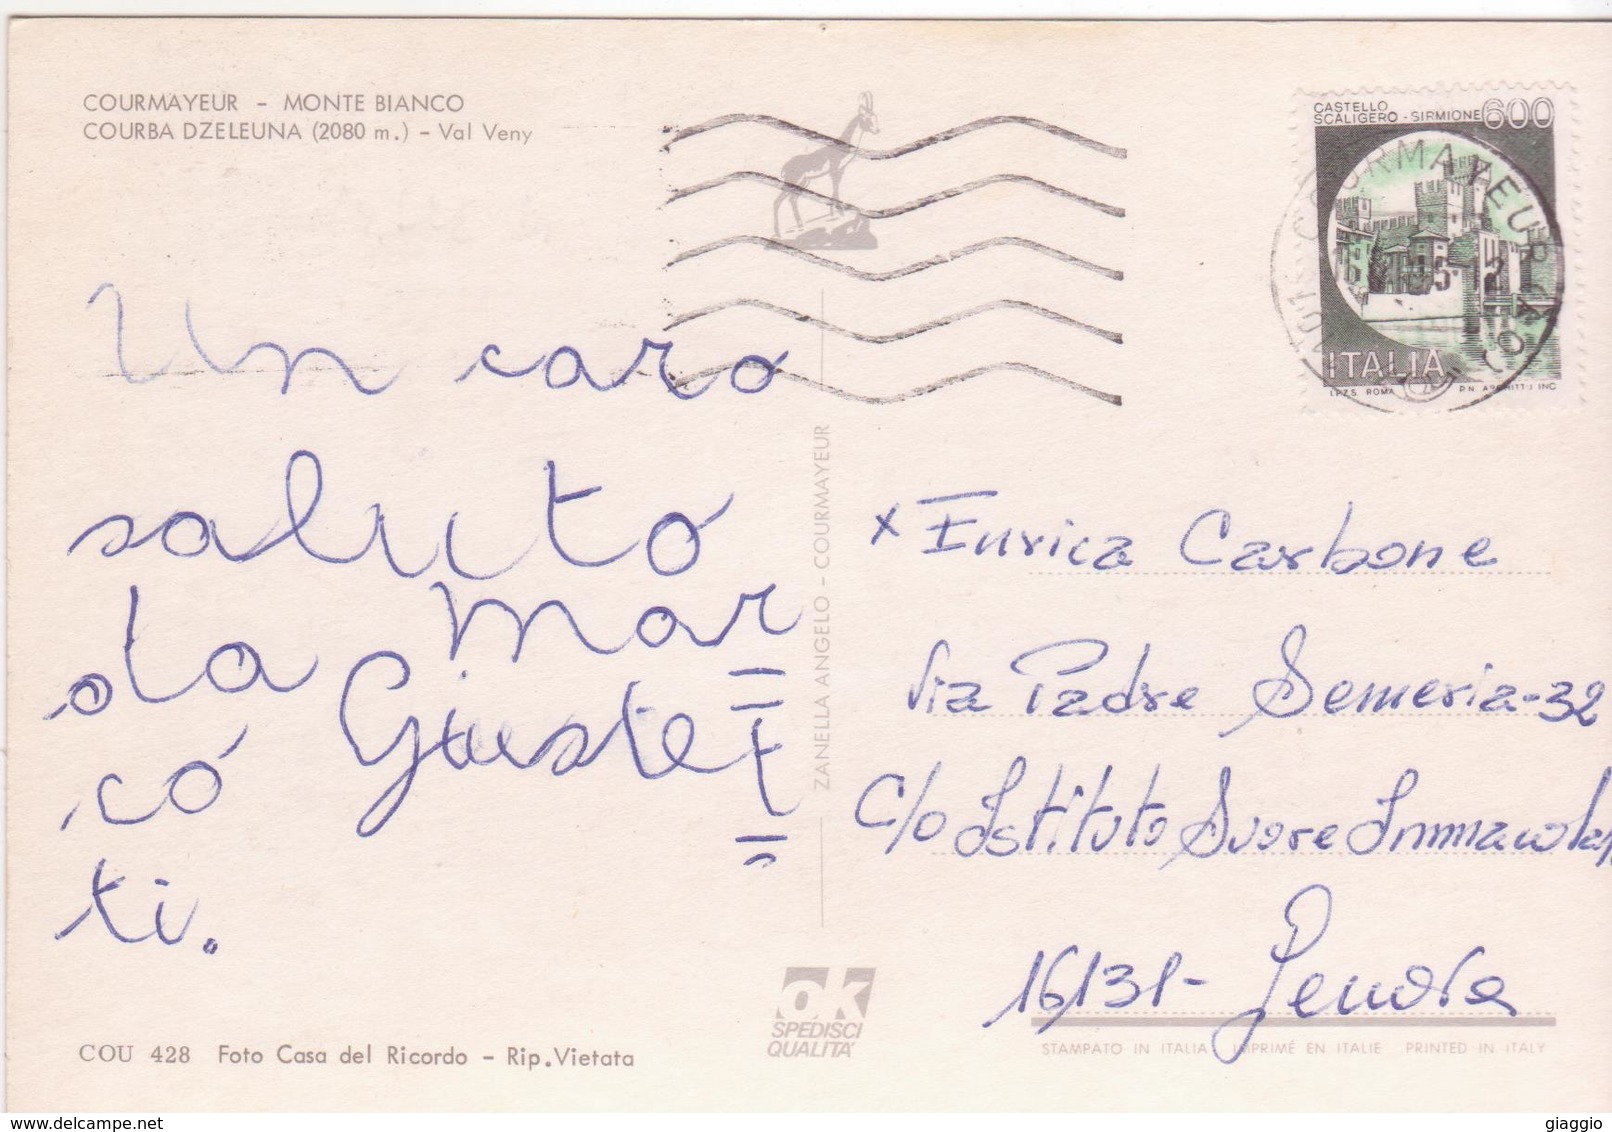 COURMAYEUR - MONTE BIANCO
COURBA DZELEUNA (2080 m.) - Val Veny
CASTELLO
SCALIGERO - SIRMIONE 600
COURMAYEUR
ITALIA
I.P.Z.S. ROMA
Un caro
saluto
da mar
có Giustet
ti.
ZANELLA ANGELO - COURMAYEUR
x Enrica Carbone
Via Padre Semeria-32
c/o Istituto Suore Immacolan
16131- Genova
OK
SPEDISCI
QUALITA'
COU 428 Foto Casa del Ricordo - Rip. Vietata
STAMPATO IN ITALIA IMPRIMÉ EN ITALIE PRINTED IN ITALY
delcampe.net
giaggio